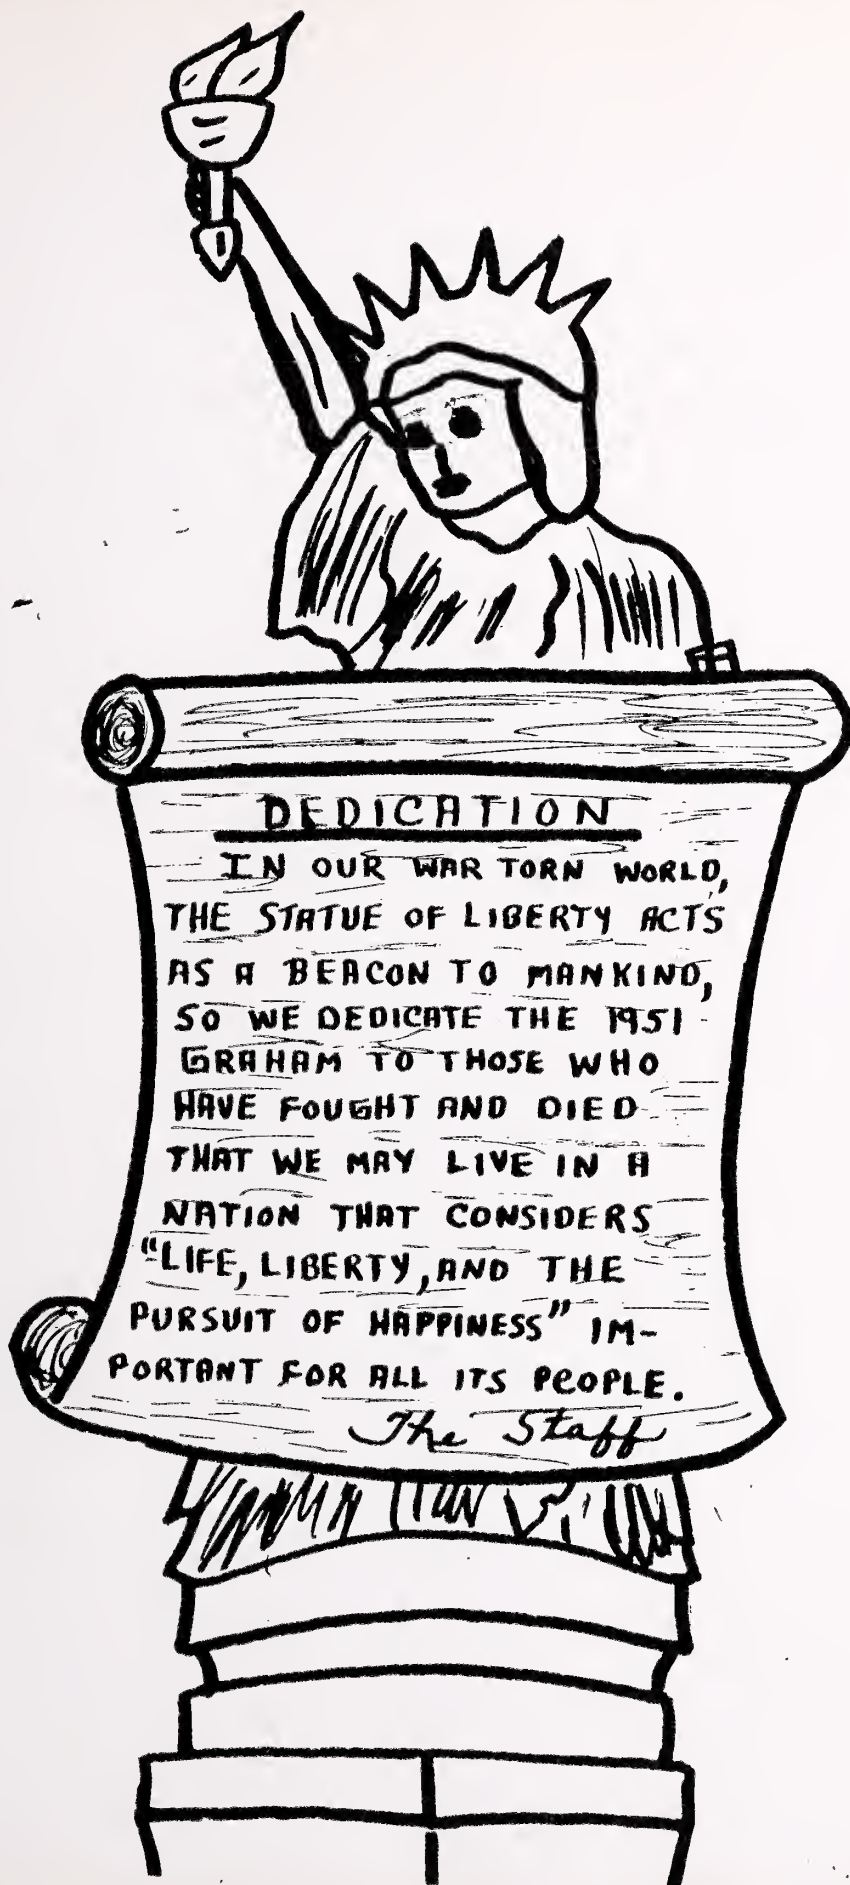 DEDICATION
IN OUR WAR TORN WORLD,
THE STATUE OF LIBERTY ACTS
AS A BEACON TO MANKIND,
SO WE DEDICATE THE 1951
GRAHAM TO THOSE WHO
HAVE FOUGHT AND DIED
THAT WE MAY LIVE IN A
NATION THAT CONSIDERS
"LIFE, LIBERTY, AND THE
PURSUIT OF HAPPINESS" IM-
PORTANT FOR ALL ITS PEOPLE.
The Staff